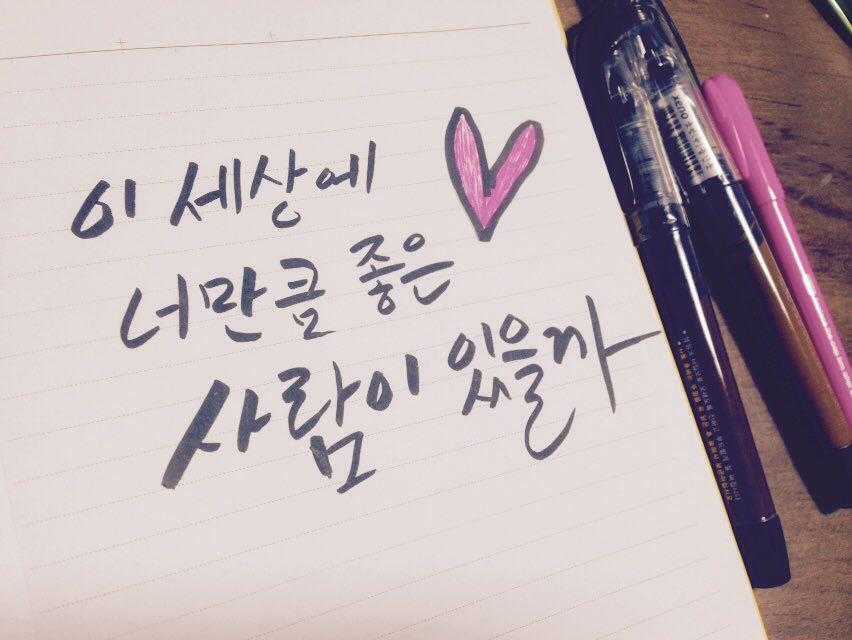 이 세상에
너만큼 좋은
사람이 있을까